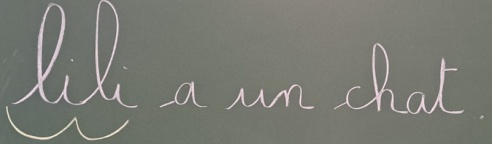 lili a un chat.